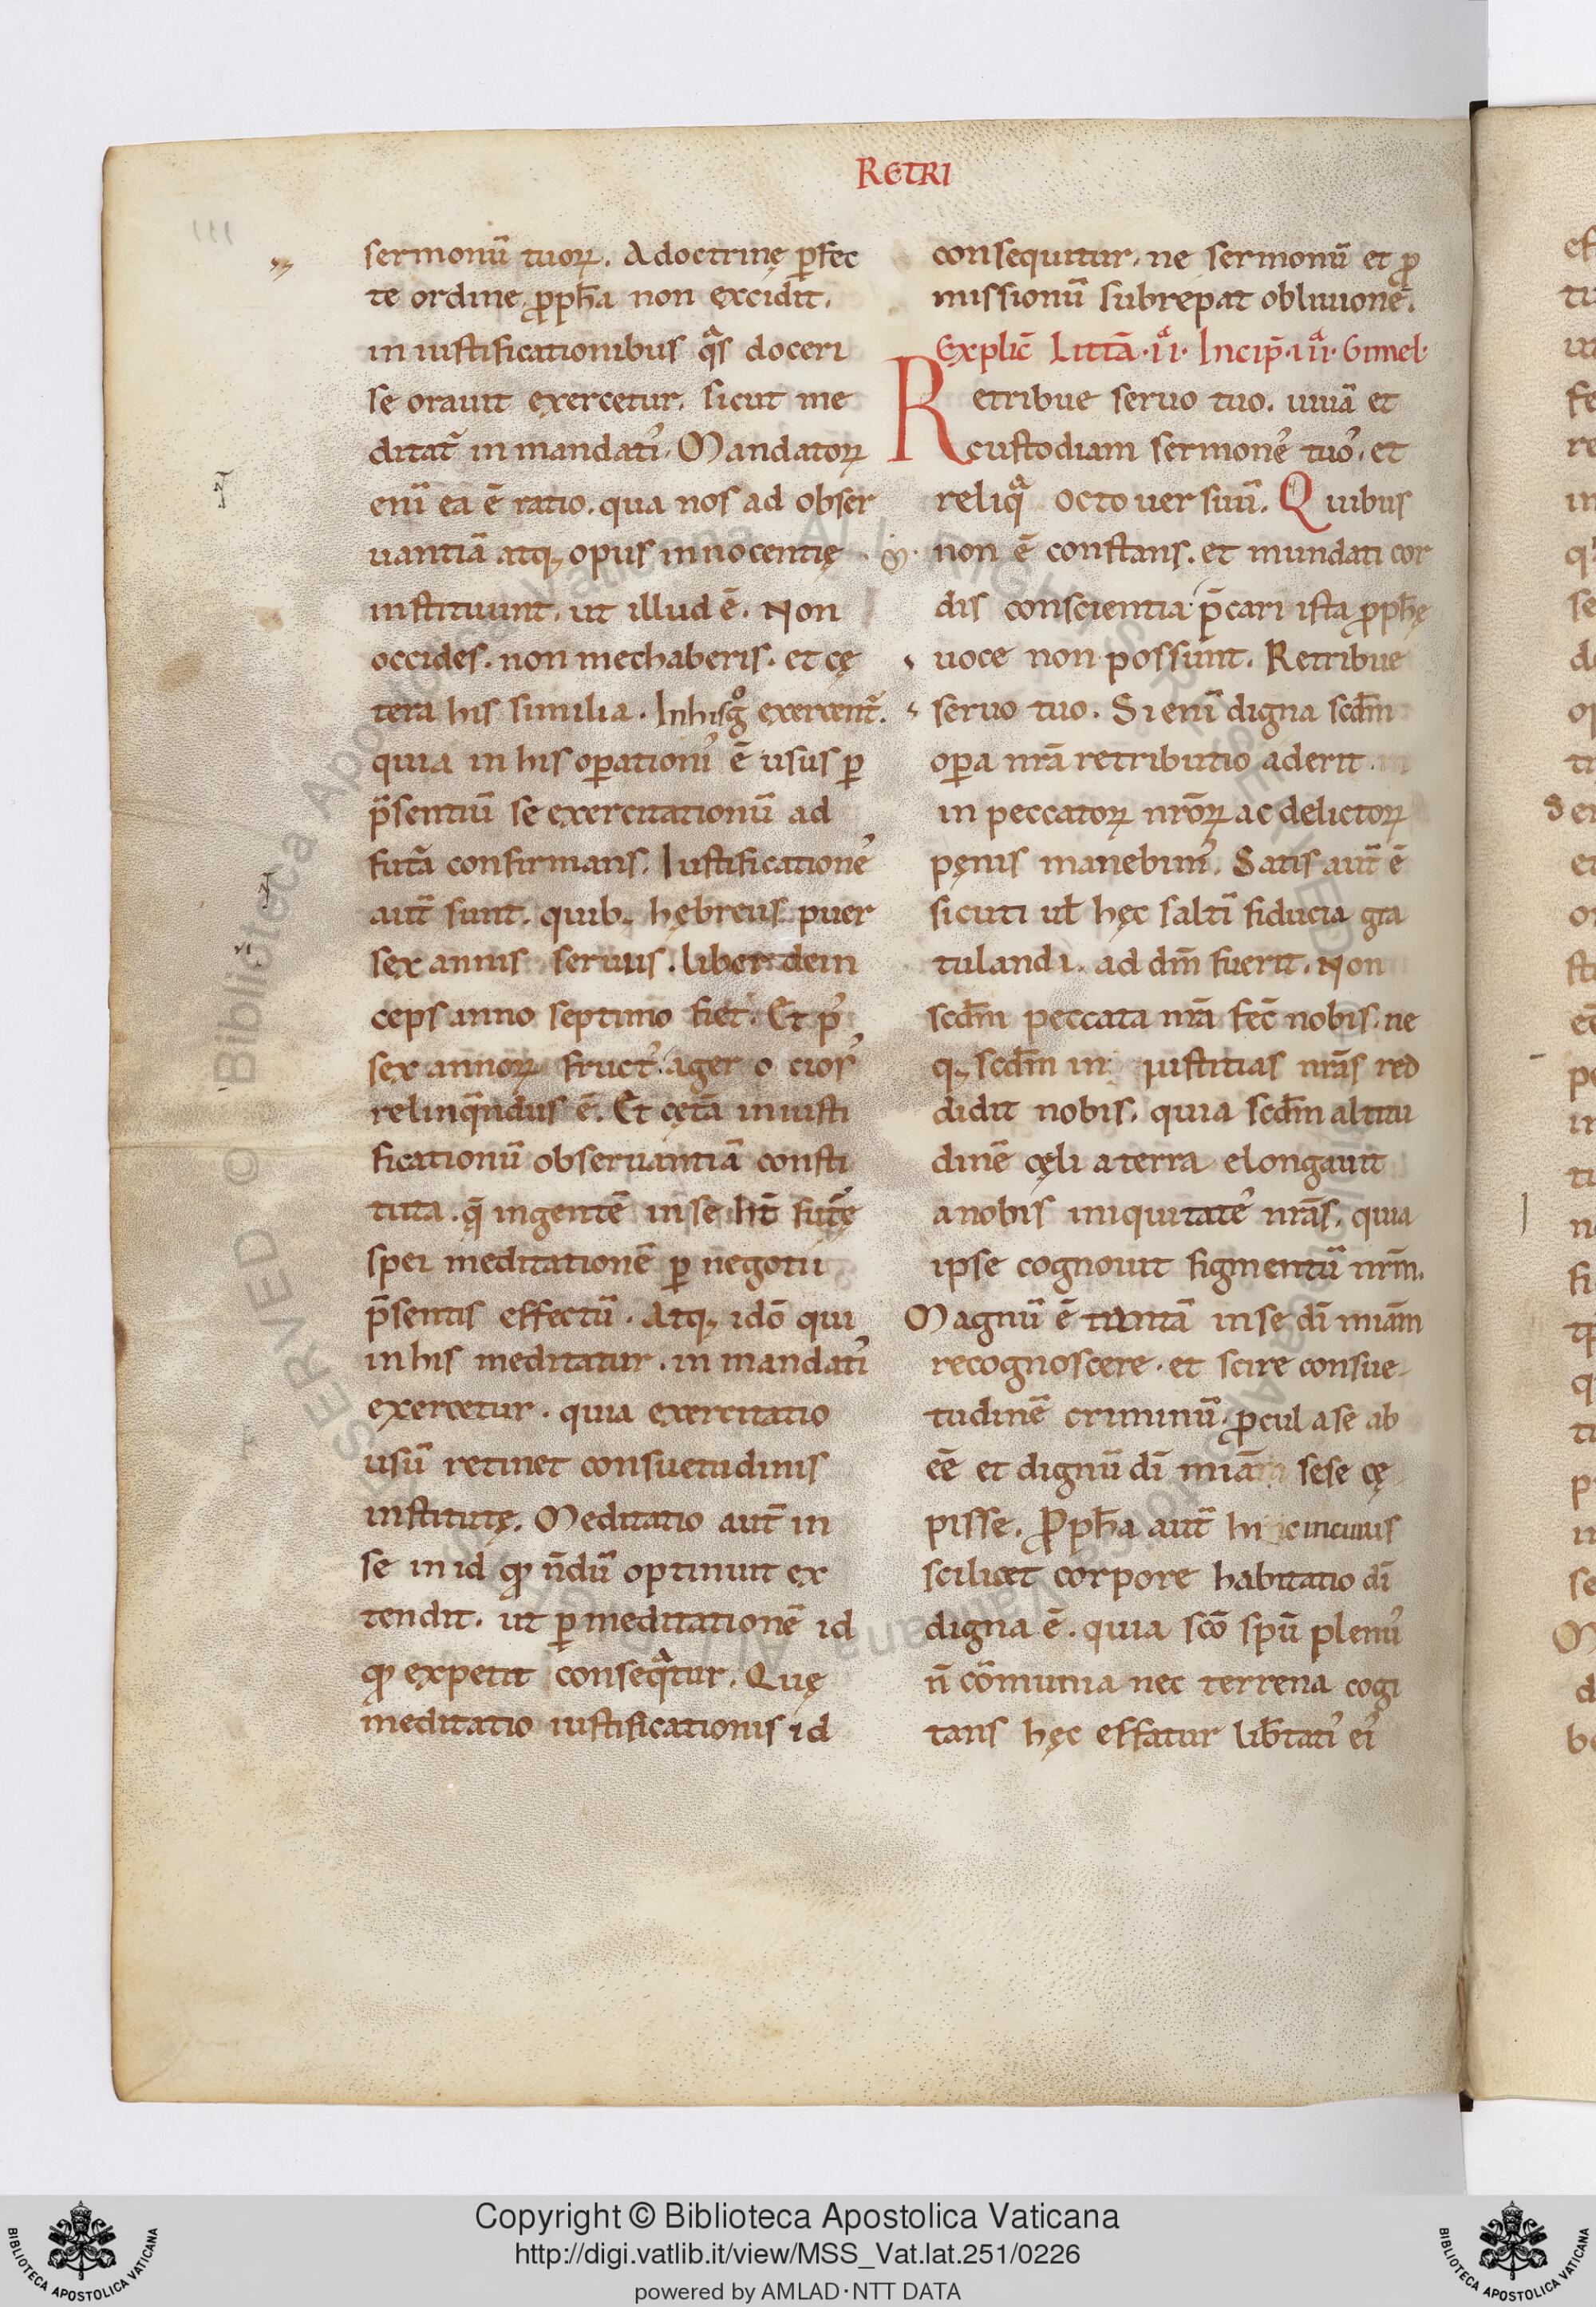 RETRI
sermonū tuoꝝ. A doctrinę ꝑfec
te ordine ꝓph̄a non excidit.
in iustificationibus qͣs doceri
se orauit exercetur. sicut me
ditat᷑ in mandatiˀ. Mandatoꝝ
enī ea ē ratio. qua nos ad obser
uantiā atqꝫ opus innocentię
instituunt. ut illud ē. Non
occides. non mechaberis. et cę
tera his similia. In his gͦ exercent᷑.
quia in his oꝑationiˀ ē usus ꝑ
p̄sentiū se exercitationū ad
fut᷑a confirmans. Iustificationeˀ
aut̄ sunt. quibꝫ hębreus puer
sex annis seruus. liber dein
ceps anno septimo fiet. Et pˀ
sex annoꝝ fructˀ. ager ociosˀ
relinq̄ndus ē. Et cęt᷑a in iusti
ficationū obseruantiā consti
tuta. q̨̄ ingentē in se hn̄t fut᷑ę
spei meditationē ꝑ negotii
p̄sentis effectū. Atqꝫ idō qui
in his meditatur. in mandatiˀ
exercetur. quia exercitatio
usū retinet consuetudinis
institutę. Meditatio aut̄ in
se in id qđ n̄dū optinuit ex
tendit. ut ꝑ meditationē id
qđ expetit conseqͣtur. Quę
meditatio iustificationis id
consequitur. ne sermonū et ꝓ
missionū subrepat obliuione.
Explic̄ Litt̄a .ii.ͣ Incip̄ .iii.ͣ Gimel.
Retribue seruo tuo. uiuā et
custodiam sermoneˀ tuoˀ. et
reliqͣ octo uersuū. Quibus
non ē constans. et mundati cor
dis conscientia p̄cari ista ꝓph̄ę
uoce non possunt. Retribue
seruo tuo. Si enī digna scd̄m
oꝑa nr̄a retributio aderit.
in peccatoꝝ nr̄oꝝ ac delictoꝝ
pęnis manebimˀ. Satis aut̄ ē
sicuti ul̄ hęc saltī fiducia gra
tulandi. ad dm̄ fuerit. Non
scd̄m peccata nr̄a fec̄ nobis. ne
qꝫ scd̄m iniustitias nr̄as red
didit nobis. quia scd̄m altitu
dinē cęli a terra elongauit
a nobis iniquitateˀ nr̄as. quia
ipse cognouit figmentū nr̄m.
Magnū ē tantā in se dī miām
recognoscere. et scire consue-
tudinē criminū. ꝓcul a se ab
eē et dignū dī miām sese cę
pisse. Ꝓph̄a aut̄ hic in cuius
scilicet corpore habitatio dī
digna ē. quia scō spū plenuˀ
n̄ cōmunia nec terrena cogi
tans hęc effatur lib̄tatiˀ eiˀ
Copyright © Biblioteca Apostolica Vaticana
http://digi.vatlib.it/view/MSS_Vat.lat.251/0226
powered by AMLAD·NTT DATA